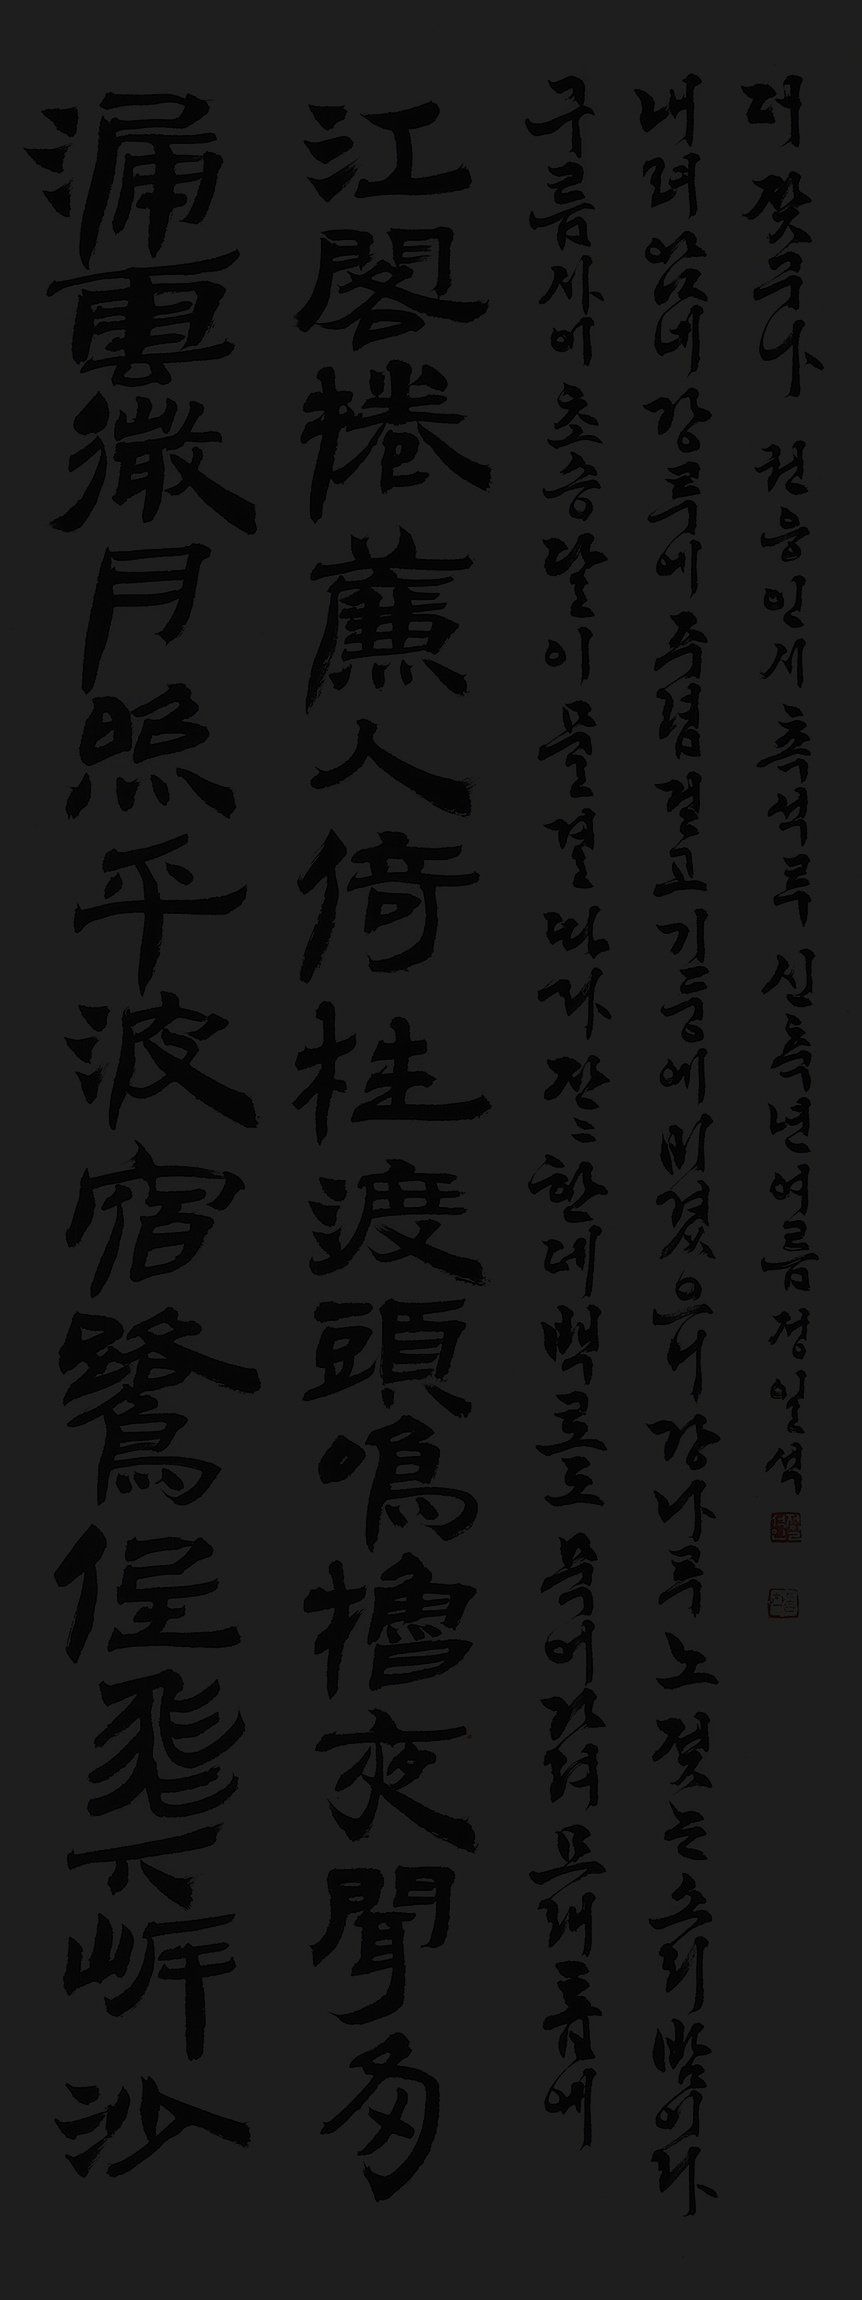 漏雲微月照平波宿鷺低飛下岸沙
江閣捲簾人倚柱渡頭鳴櫓夜聞多
구름 사이 초승달이 물결 따라 잔〻한데 백로도 묵어가려 모래톱에
내려앉네 강루에 주렴 걷고 기둥에 비겼으니 강나루 노 젓는 소리 밤이라
더 잦구나 권응인 시 촉석루 신축년 여름 정일석